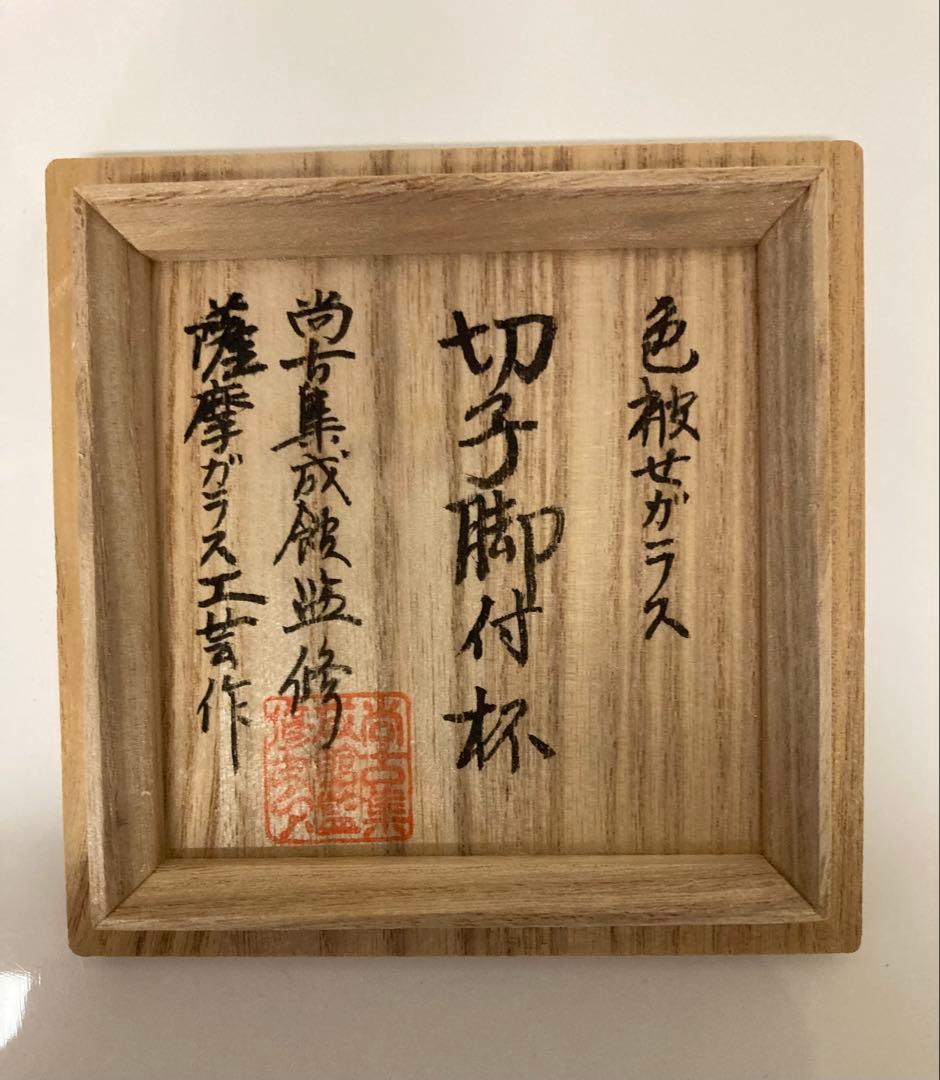 色被せガラス
切子脚付杯
尚古集成館監修
薩摩ガラス工芸作
尚古集
成館監
修之印